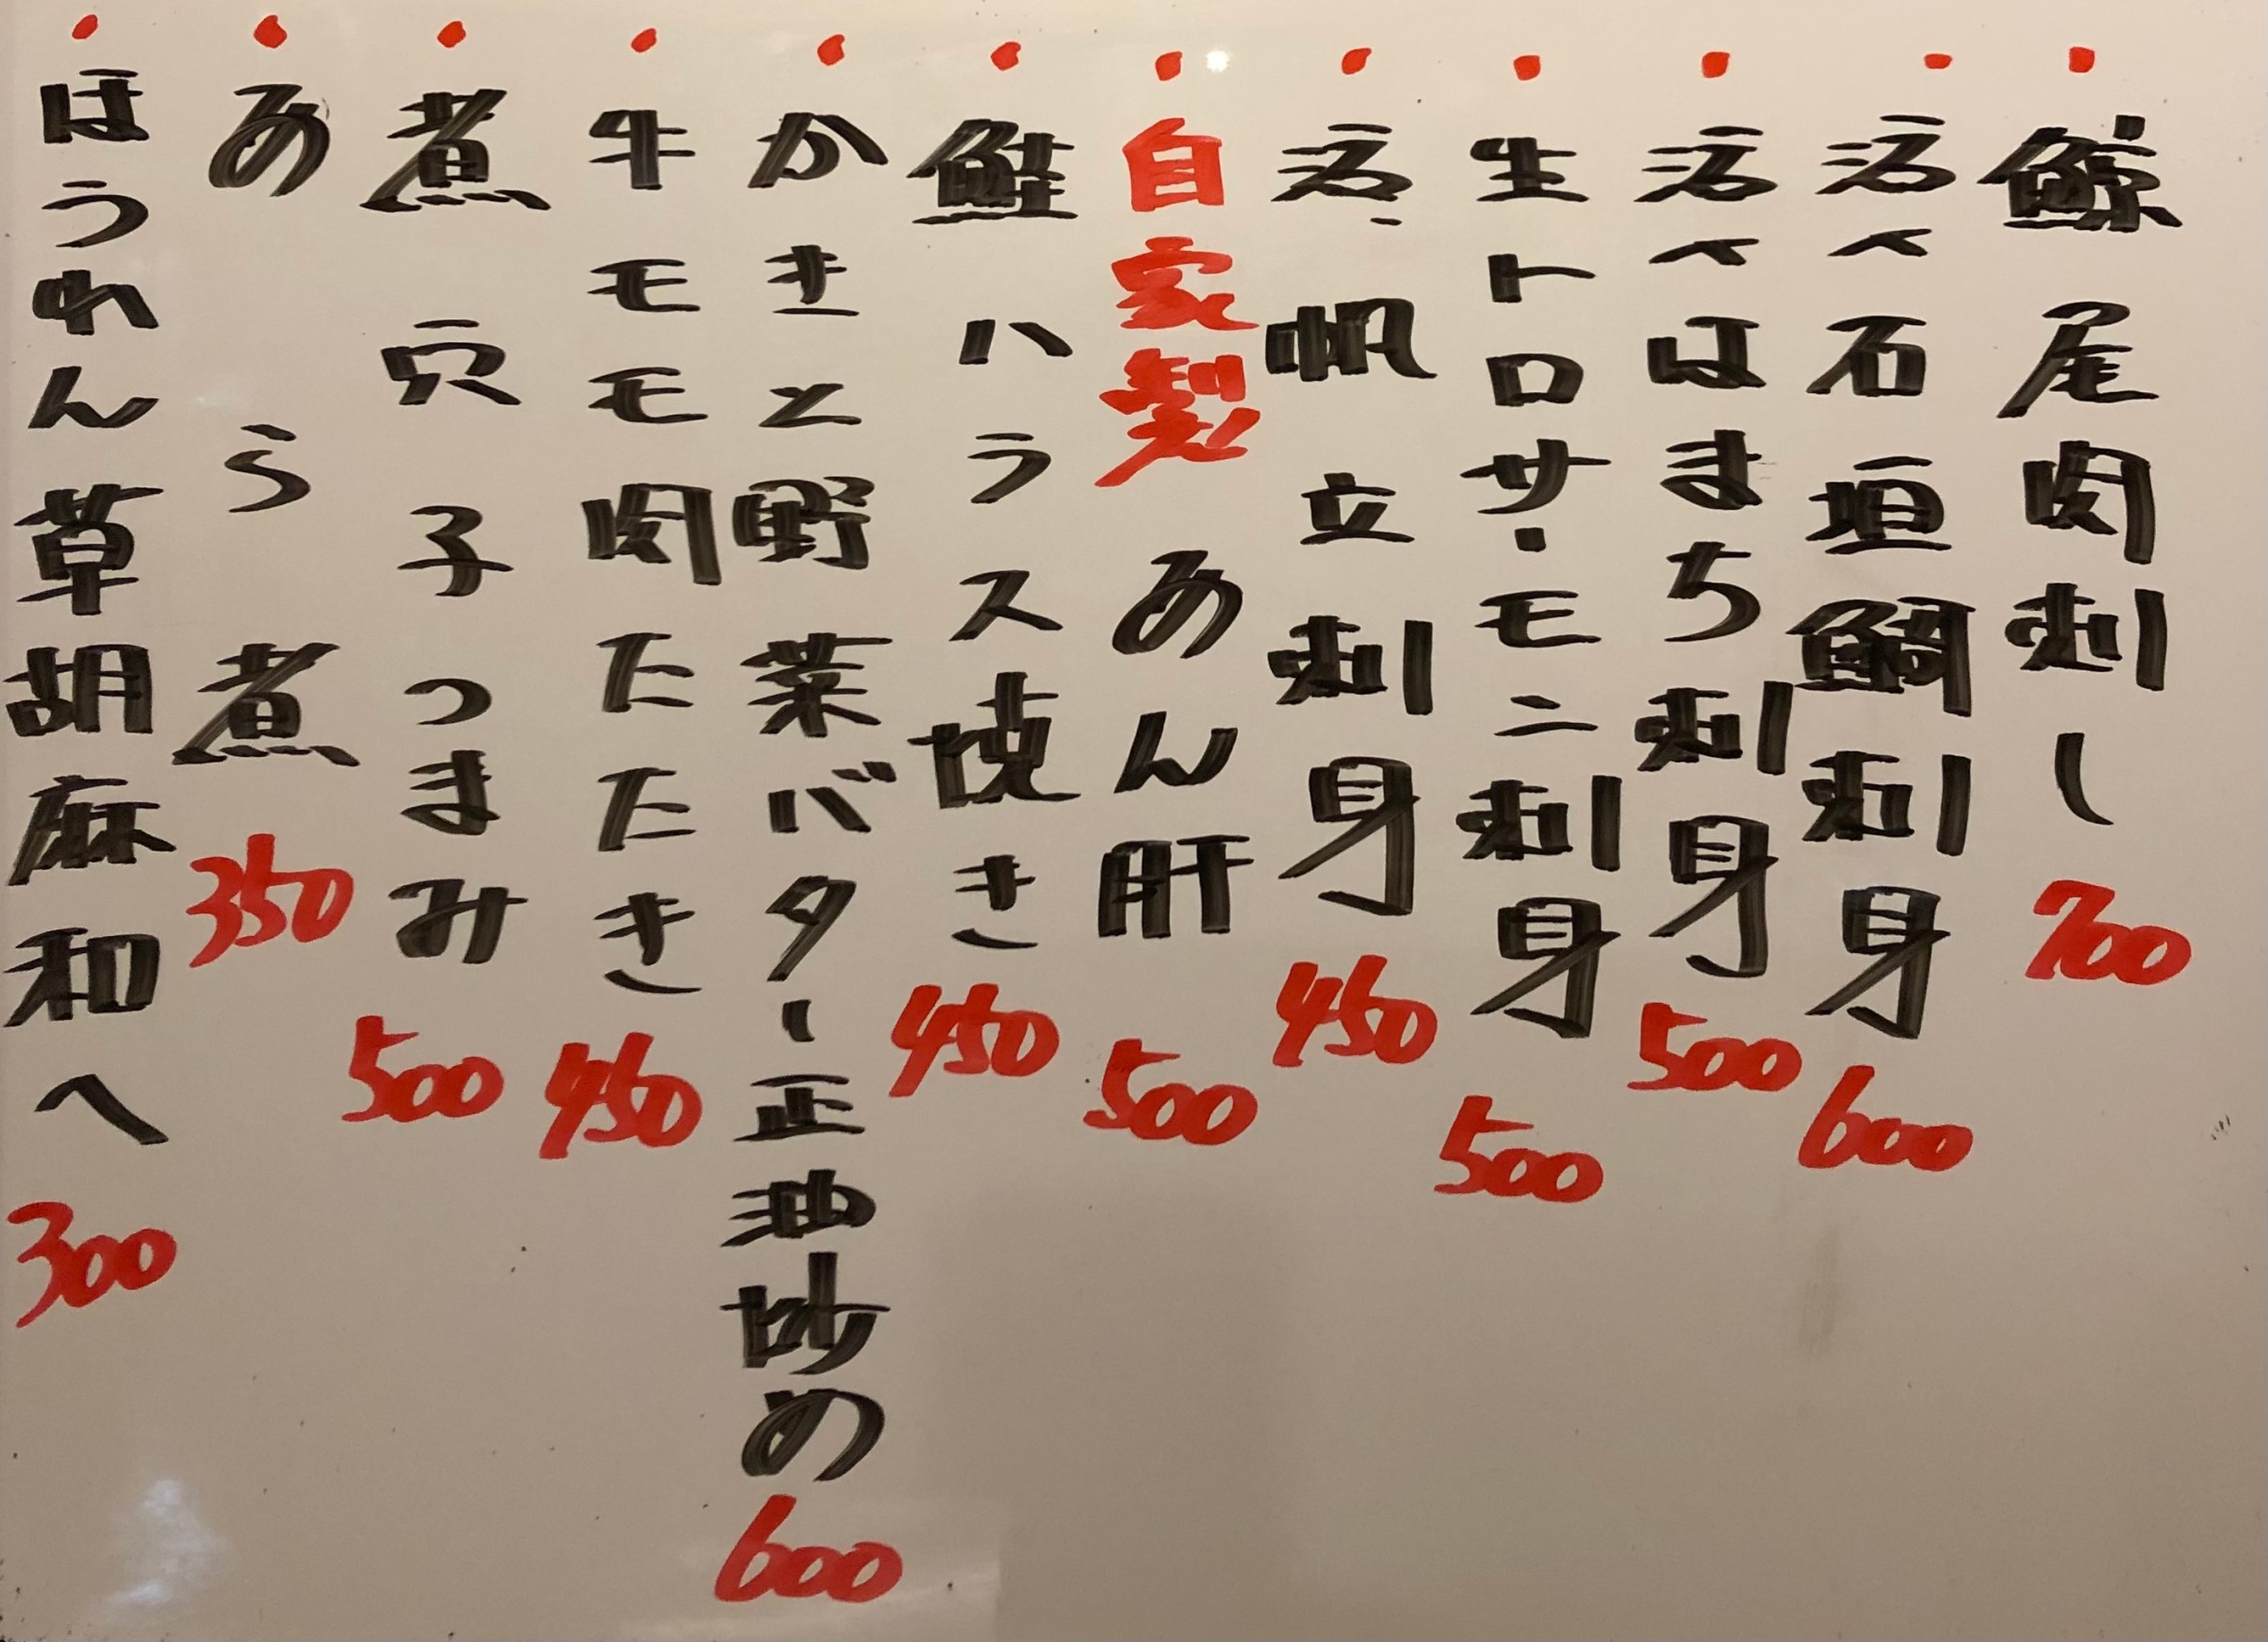 ・鯨尾肉刺し 700
・活〆石垣鯛刺身 600
・活〆はまち刺身 500
・生トロサーモン刺身 500
・活帆立刺身 450
・自家製あん肝 500
・鮭ハラス焼き 450
・かきと野菜バター正油炒め 600
・牛モモ肉たたき 450
・煮穴子つまみ 500
・あら煮 350
・ほうれん草胡麻和へ 300